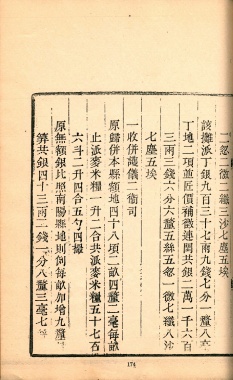 二忽二微二纖三沙七塵五埃
該攤派丁銀九百三十七兩九錢七分一釐八毫
丁地二項並匠價補徵連閏共銀二萬一千六百
三兩三錢六分六釐五絲五忽一微七纖八沙
七塵五埃
一收併護儀二衞司
原歸併本縣額地四十八項二畝四釐二毫每畝
止派麥米糧一升二合共派麥米糧五十七石
六斗二升四合五勺四撮
原無額銀比照南陽縣地則例每畝加增九釐
算共銀四十三兩二錢二分八釐三毫七
174